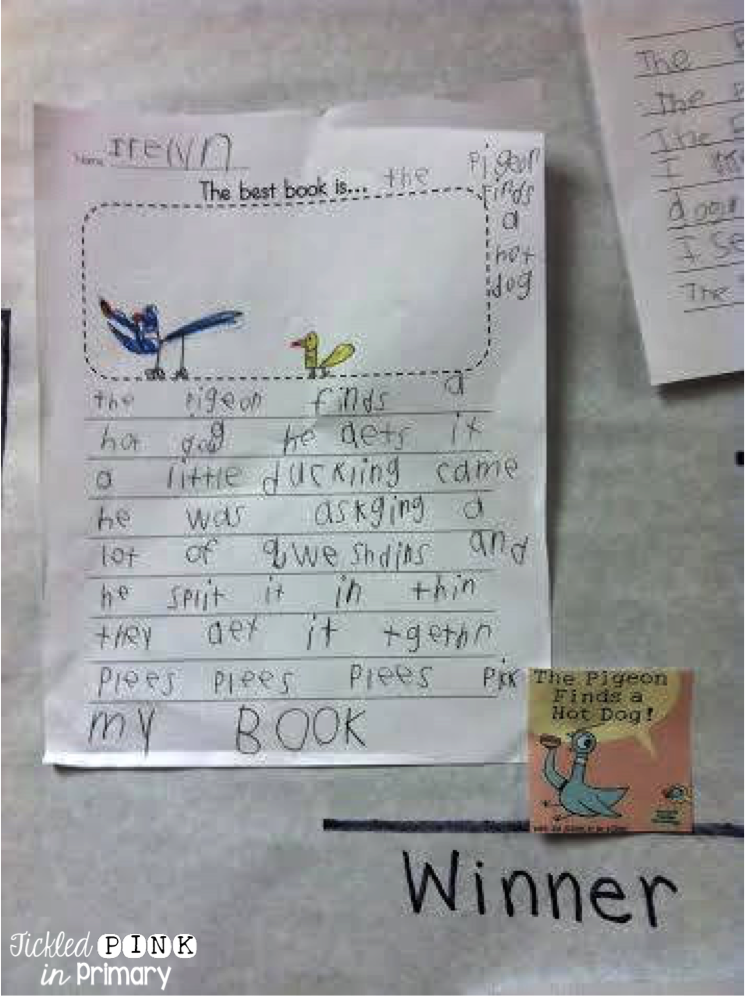 Name
The best book is... the pigeon
finds
a
hot
dog
the pigeon finds a
hot dog he gets it
a little duckling came
he was askging a
lot of qweshdins and
he split it in thin
they aet it tgethn
plees plees plees pick
my BOOK
The Pigeon
Finds a
Hot Dog!
Winner
The
The
The
I
door
I se
The
Tickled PINK
in Primary